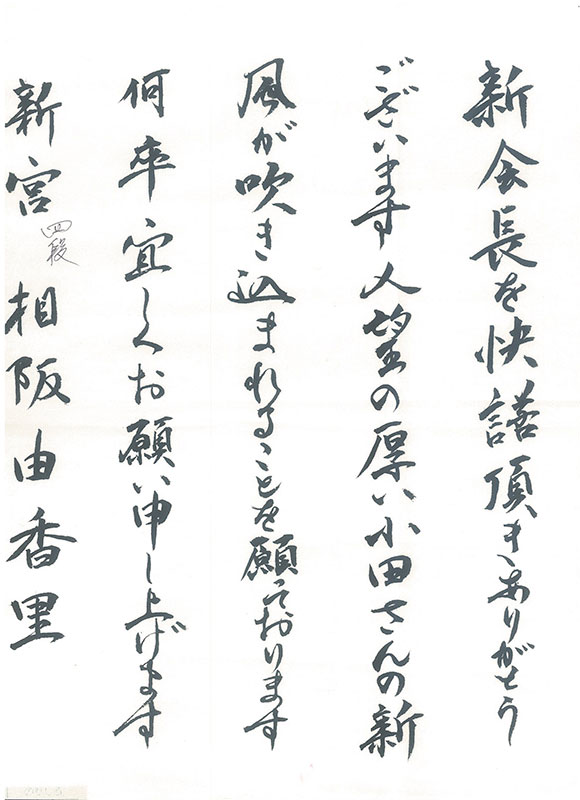 新会長を快諾頂きありがとう
ございます人望の厚い小田さんの新
風が吹き込まれることを願っております
何卒宜しくお願い申し上げます
新宮 四段 相阪由香里